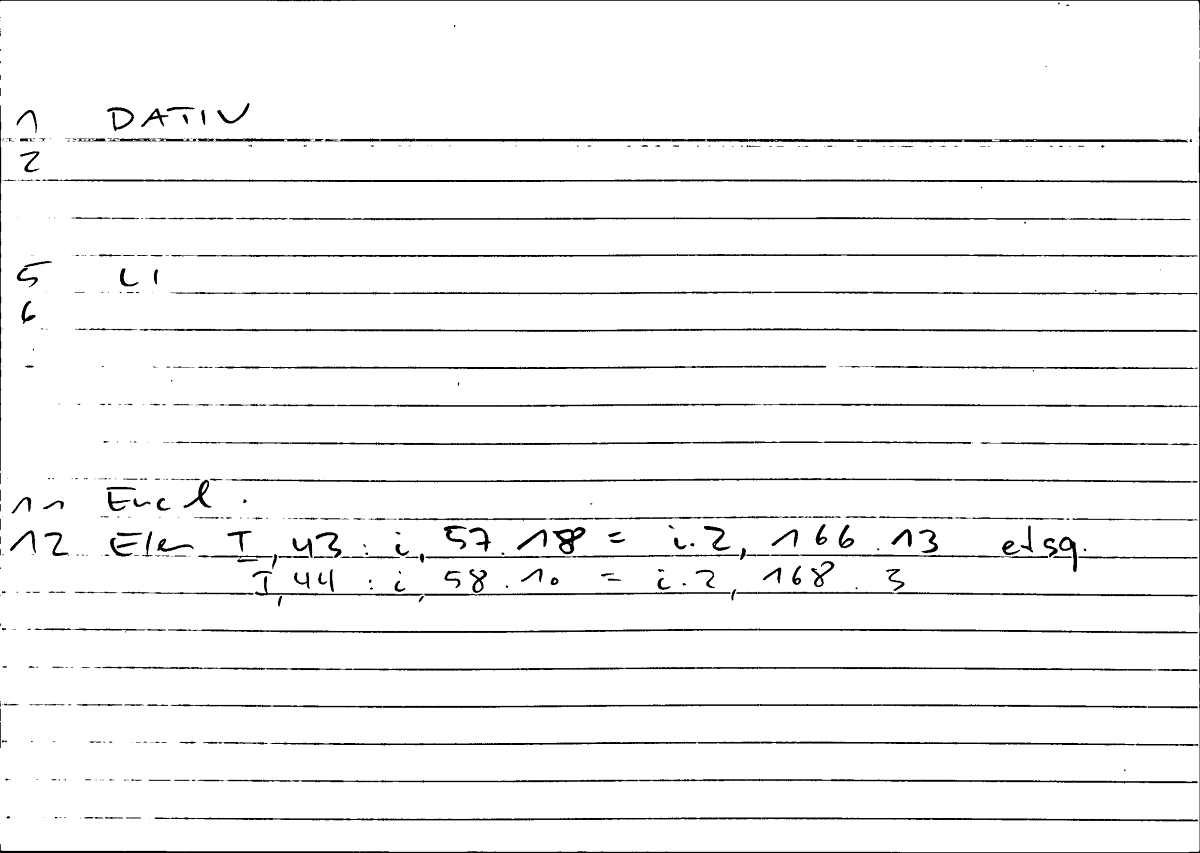 1 DATIV
2
5 LI
6
11 Eucl.
12 Elem I, 43 : i, 57.18 = i.2, 166.13 et sq.
I, 44 : i, 58.10 = i.2, 168.3